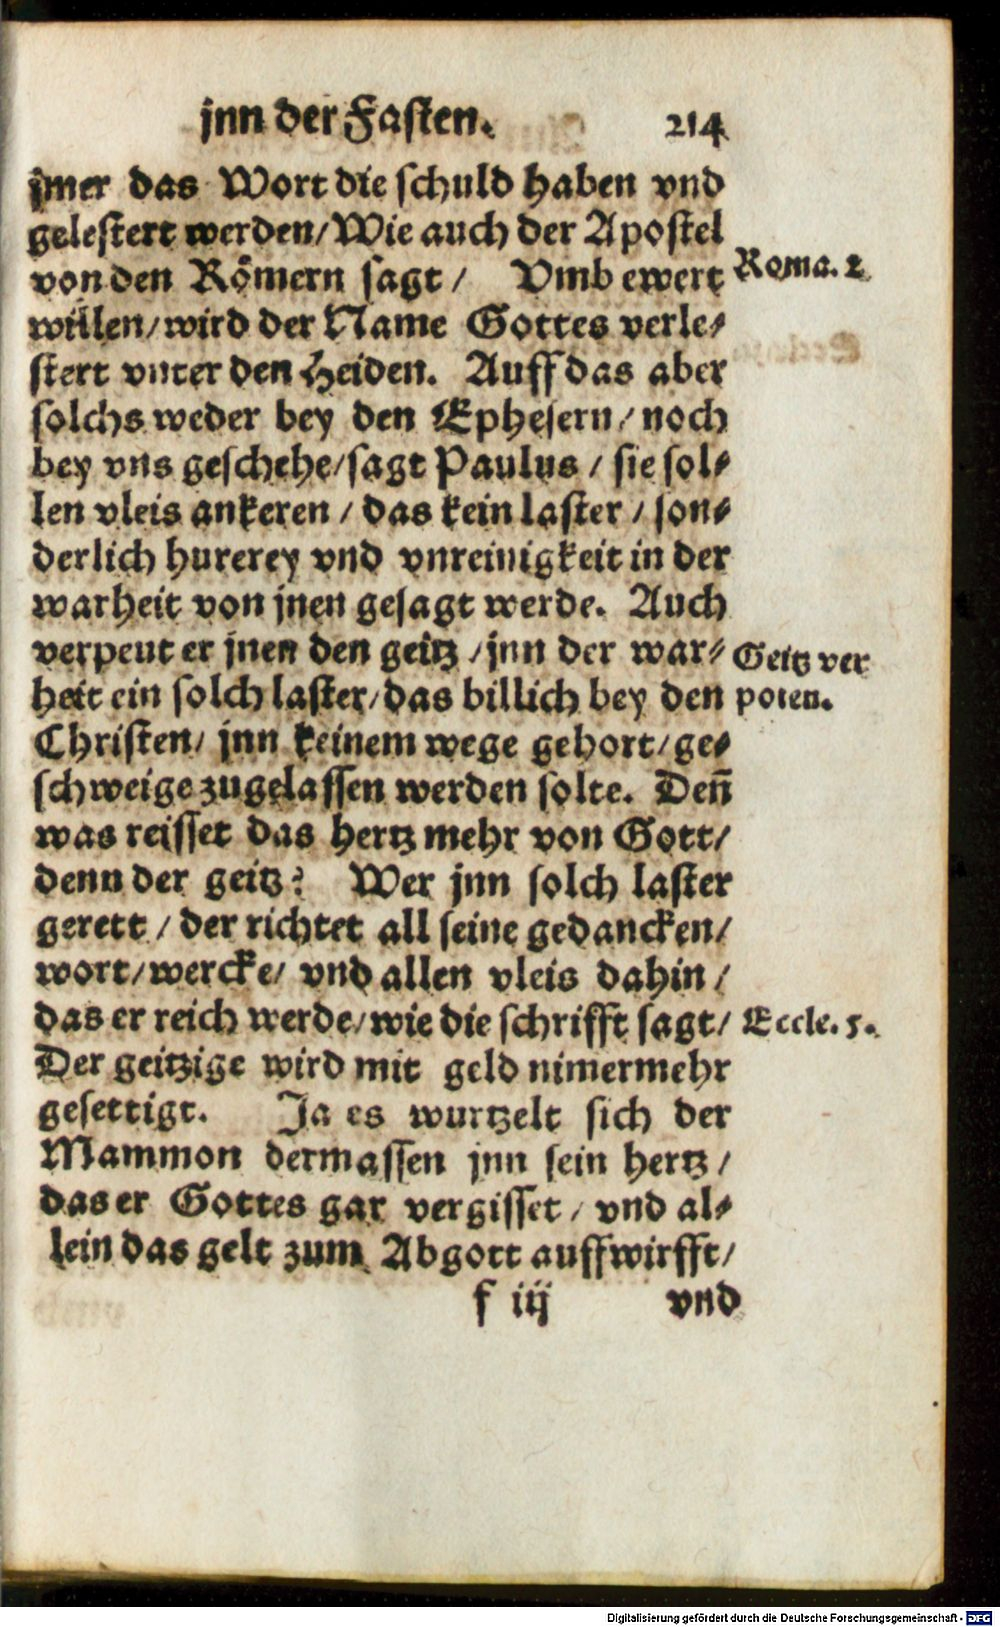 jnn der Fasten. 214
jmer das Wort die schuld haben vnd
gelestert werden/Wie auch der Apostel
von den Römern sagt / Vmb ewert Roma. 2
willen/wird der Name Gottes verle⸗
stert vnter den Heiden. Auff das aber
solchs weder bey den Ephesern/noch
bey vns geschehe/sagt Paulus / sie sol⸗
len vleis ankeren / das kein laster / son⸗
derlich hurerey vnd vnreinigkeit in der
warheit von jnen gesagt werde. Auch
verpeut er jnen den geitz /jnn der war⸗ Geitz ver
heit ein solch laster/das billich bey den poten.
Christen/ jnn keinem wege gehort/ge⸗
schweige zugelassen werden solte. Deñ
was reisset das hertz mehr von Gott/
denn der geitz? Wer jnn solch laster
gerett / der richtet all seine gedancken/
wort/wercke/ vnd allen vleis dahin /
das er reich werde/wie die schrifft sagt/ Eccle. 5.
Der geitzige wird mit geld nimermehr
gesettigt. Ja es wurtzelt sich der
Mammon dermassen jnn sein hertz /
das er Gottes gar vergisset / vnd al⸗
lein das gelt zum Abgott auffwirfft/
f iij vnd
Digitalisierung gefördert durch die Deutsche Forschungsgemeinschaft - DFG